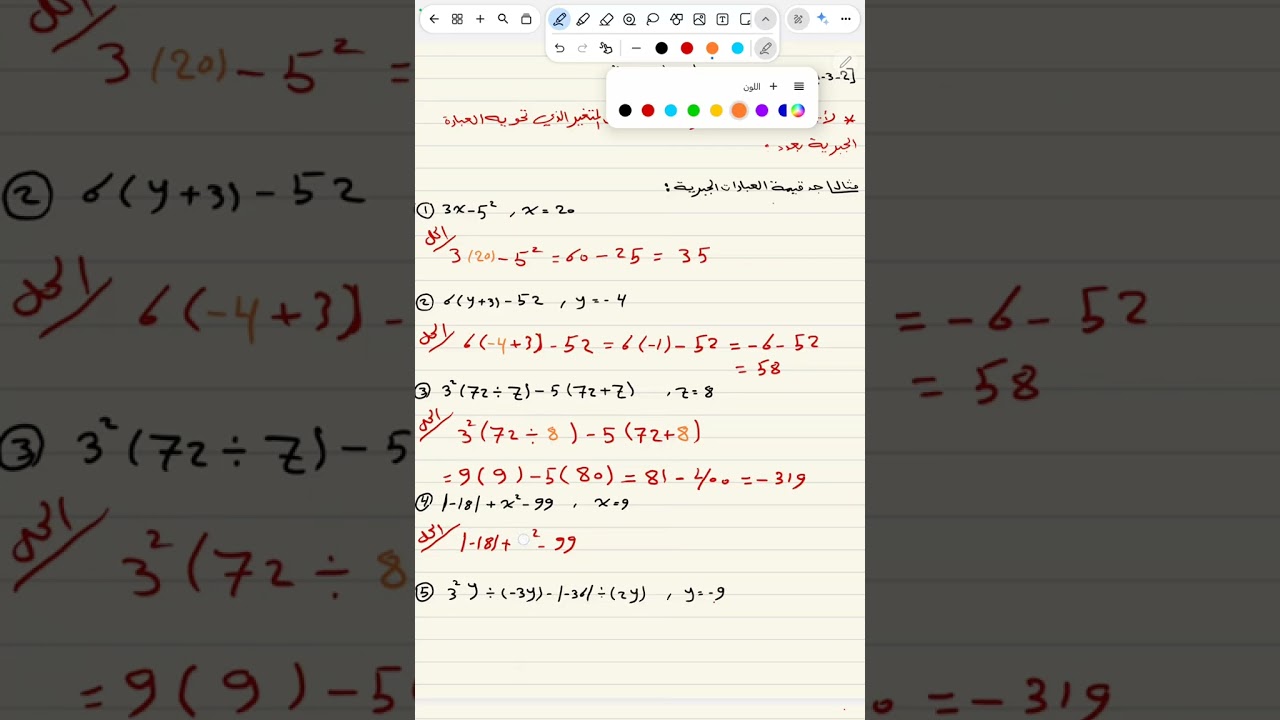 اللون
[2-3-
* لأ المتغير الذي تحويه العبارة
الجبرية بعدد .
مثال/ جد قيمة العبارات الجبرية :
① 3x-5² , x = 20
الحل/ 3(20)-5² = 60 - 25 = 35
② 6(y+3)-52 , y=-4
الحل/ 6(-4+3)-52 = 6(-1)-52 = -6-52
= 58
③ 3²(72÷z)-5(72+z) , z=8
الحل/ 3²(72÷8)-5(72+8)
= 9(9)-5(80) = 81-400 = -319
④ |-18|+x²-99 , x=9
الحل/ |-18|+ ²-99
⑤ 3²y÷(-3y)-|-36|÷(2y) , y=-9